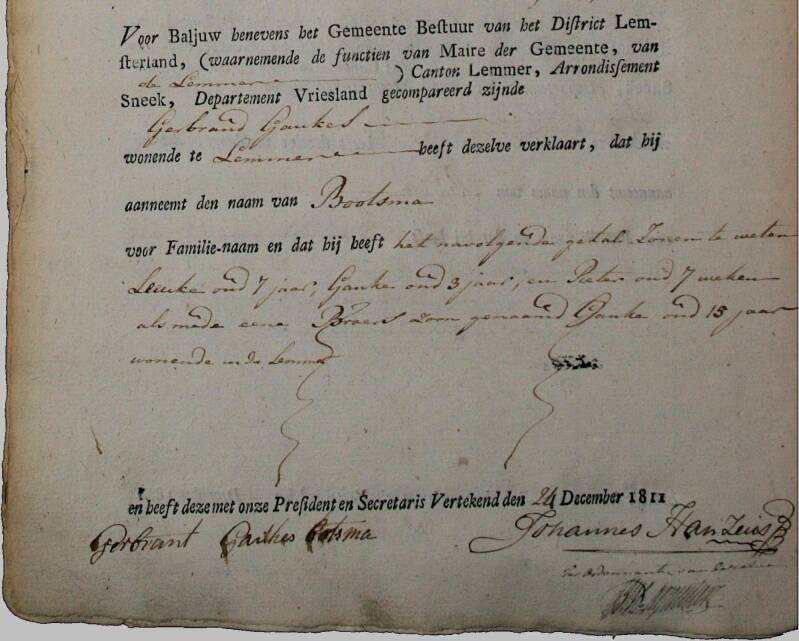 Voor Baljuw benevens het Gemeente Bestuur van het District Lem-
sterland, (waarnemende de functien van Maire der Gemeente, van
de Lemmer ) Canton Lemmer, Arrondissement
Sneek, Departement Vriesland gecompareerd zijnde
Gerbrand Gaukes
wonende te Lemmer heeft dezelve verklaart, dat hij
aanneemt den naam van Bootsma
voor Familie-naam en dat hij heeft het navolgende getal Zonen te weten
Leuke oud 7 jaar, Gauke oud 3 jaar, en Pieter oud 7 weken
als mede eene Broers zoon genaamd Gauke oud 15 jaar
wonende in de Lemmer
en heeft deze met onze President en Secretaris Vertekend den 24 December 1811
Gerbrant Gaukes Botsma Johannes